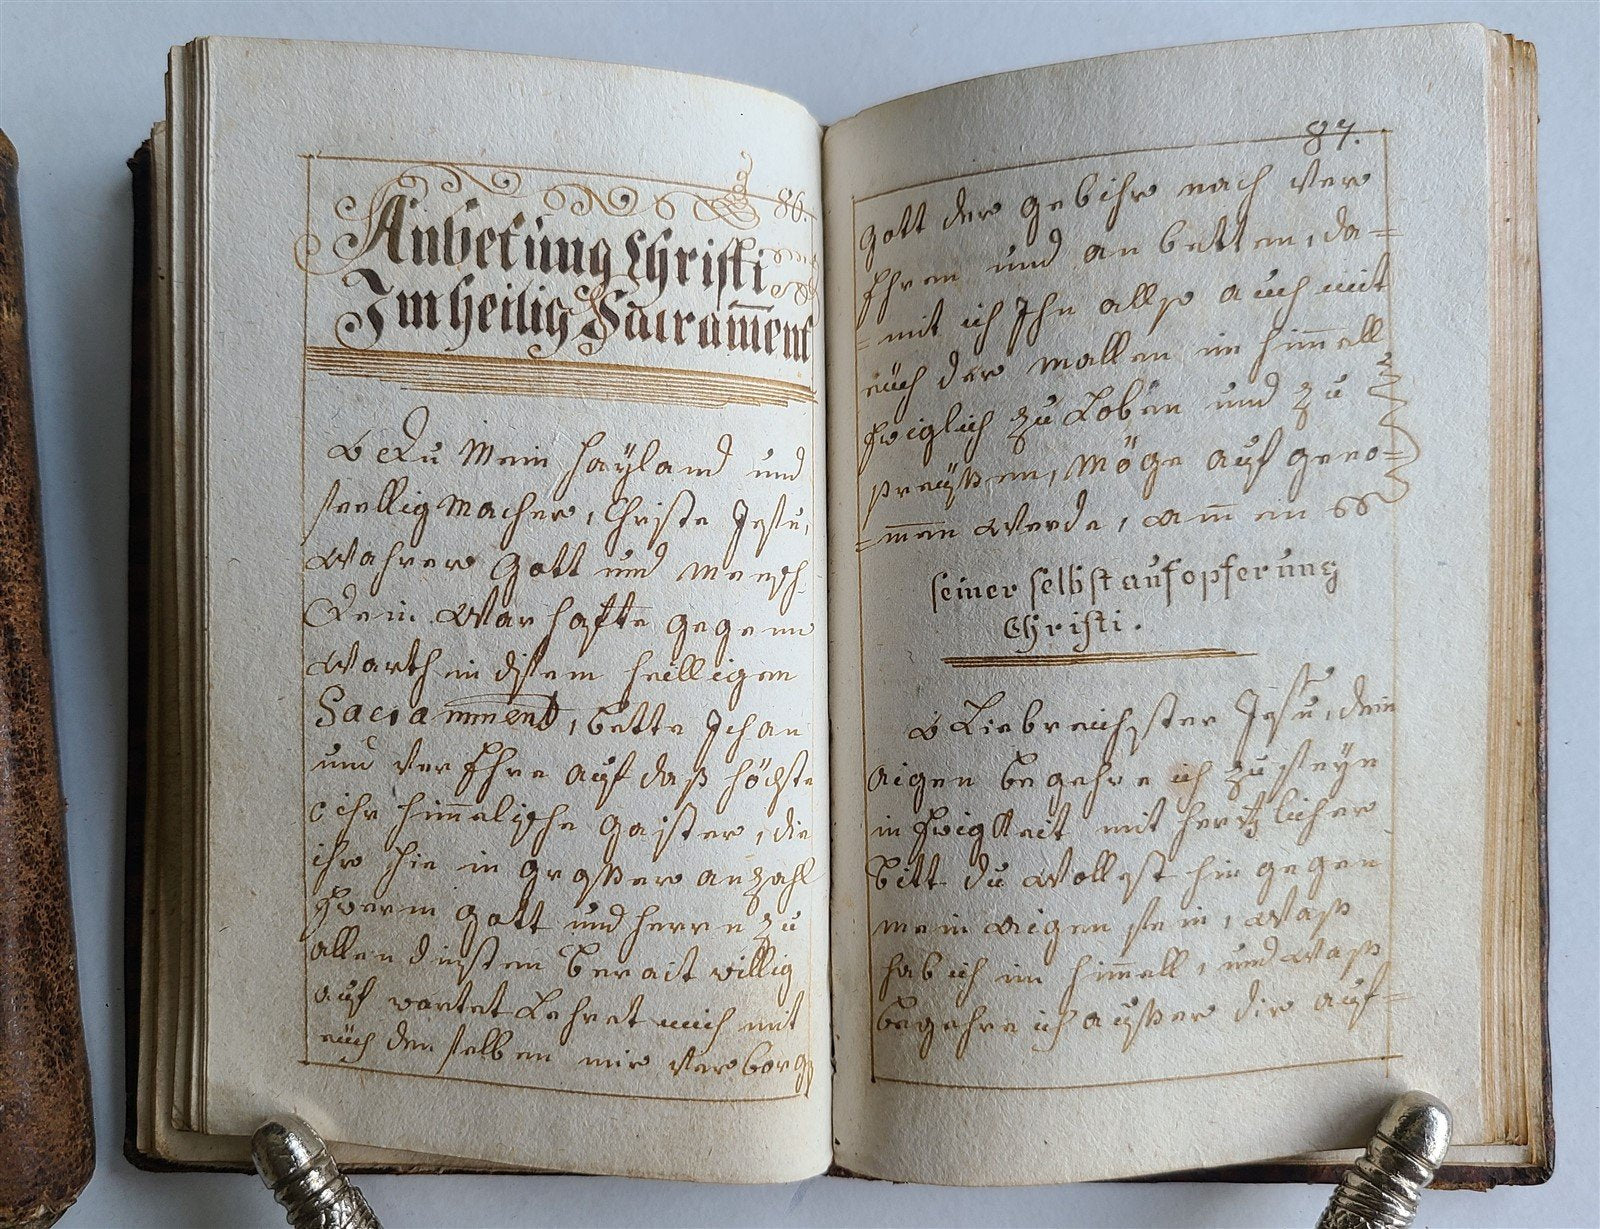 86.
Anbetung Christi
Im heilig Sacram̅ent
O Du Mein Hayland und
seelligmacher, Christe Jesu,
Wahrer Gott und Mensch.
Dein Warhaffte gegenn
Warth in disem heilligen
Sacramment, bette Ich an
und verEhre auf daß höchste
O ihr him̅elische Gaister, die
ihr hie in großer anzahl
Eüern Gott und herrn zu
allen diensten berait willig
auf wartet Lehret mich mit
eüch denselben mir verborg
87.
Gott der gebihr nach ver
Ehren und an betten, da=
=mit ich Ihn allso auch mit
eüch der mallen im him̅ell
Ewiglich zu Loben und zu
preyßen, Möge auf geno=
=m̅en Werde, am̅en
seiner selbst aufopferung
Christi.
O Liebreichster Jesu, dein
aigen begehre ich zu seyn
in Ewigkeit mit hertzlicher
bitt du Wollest hin gegen
mein aigen sein, Waß
hab ich im him̅ell, und Waß
begehre ich außer dir auf=